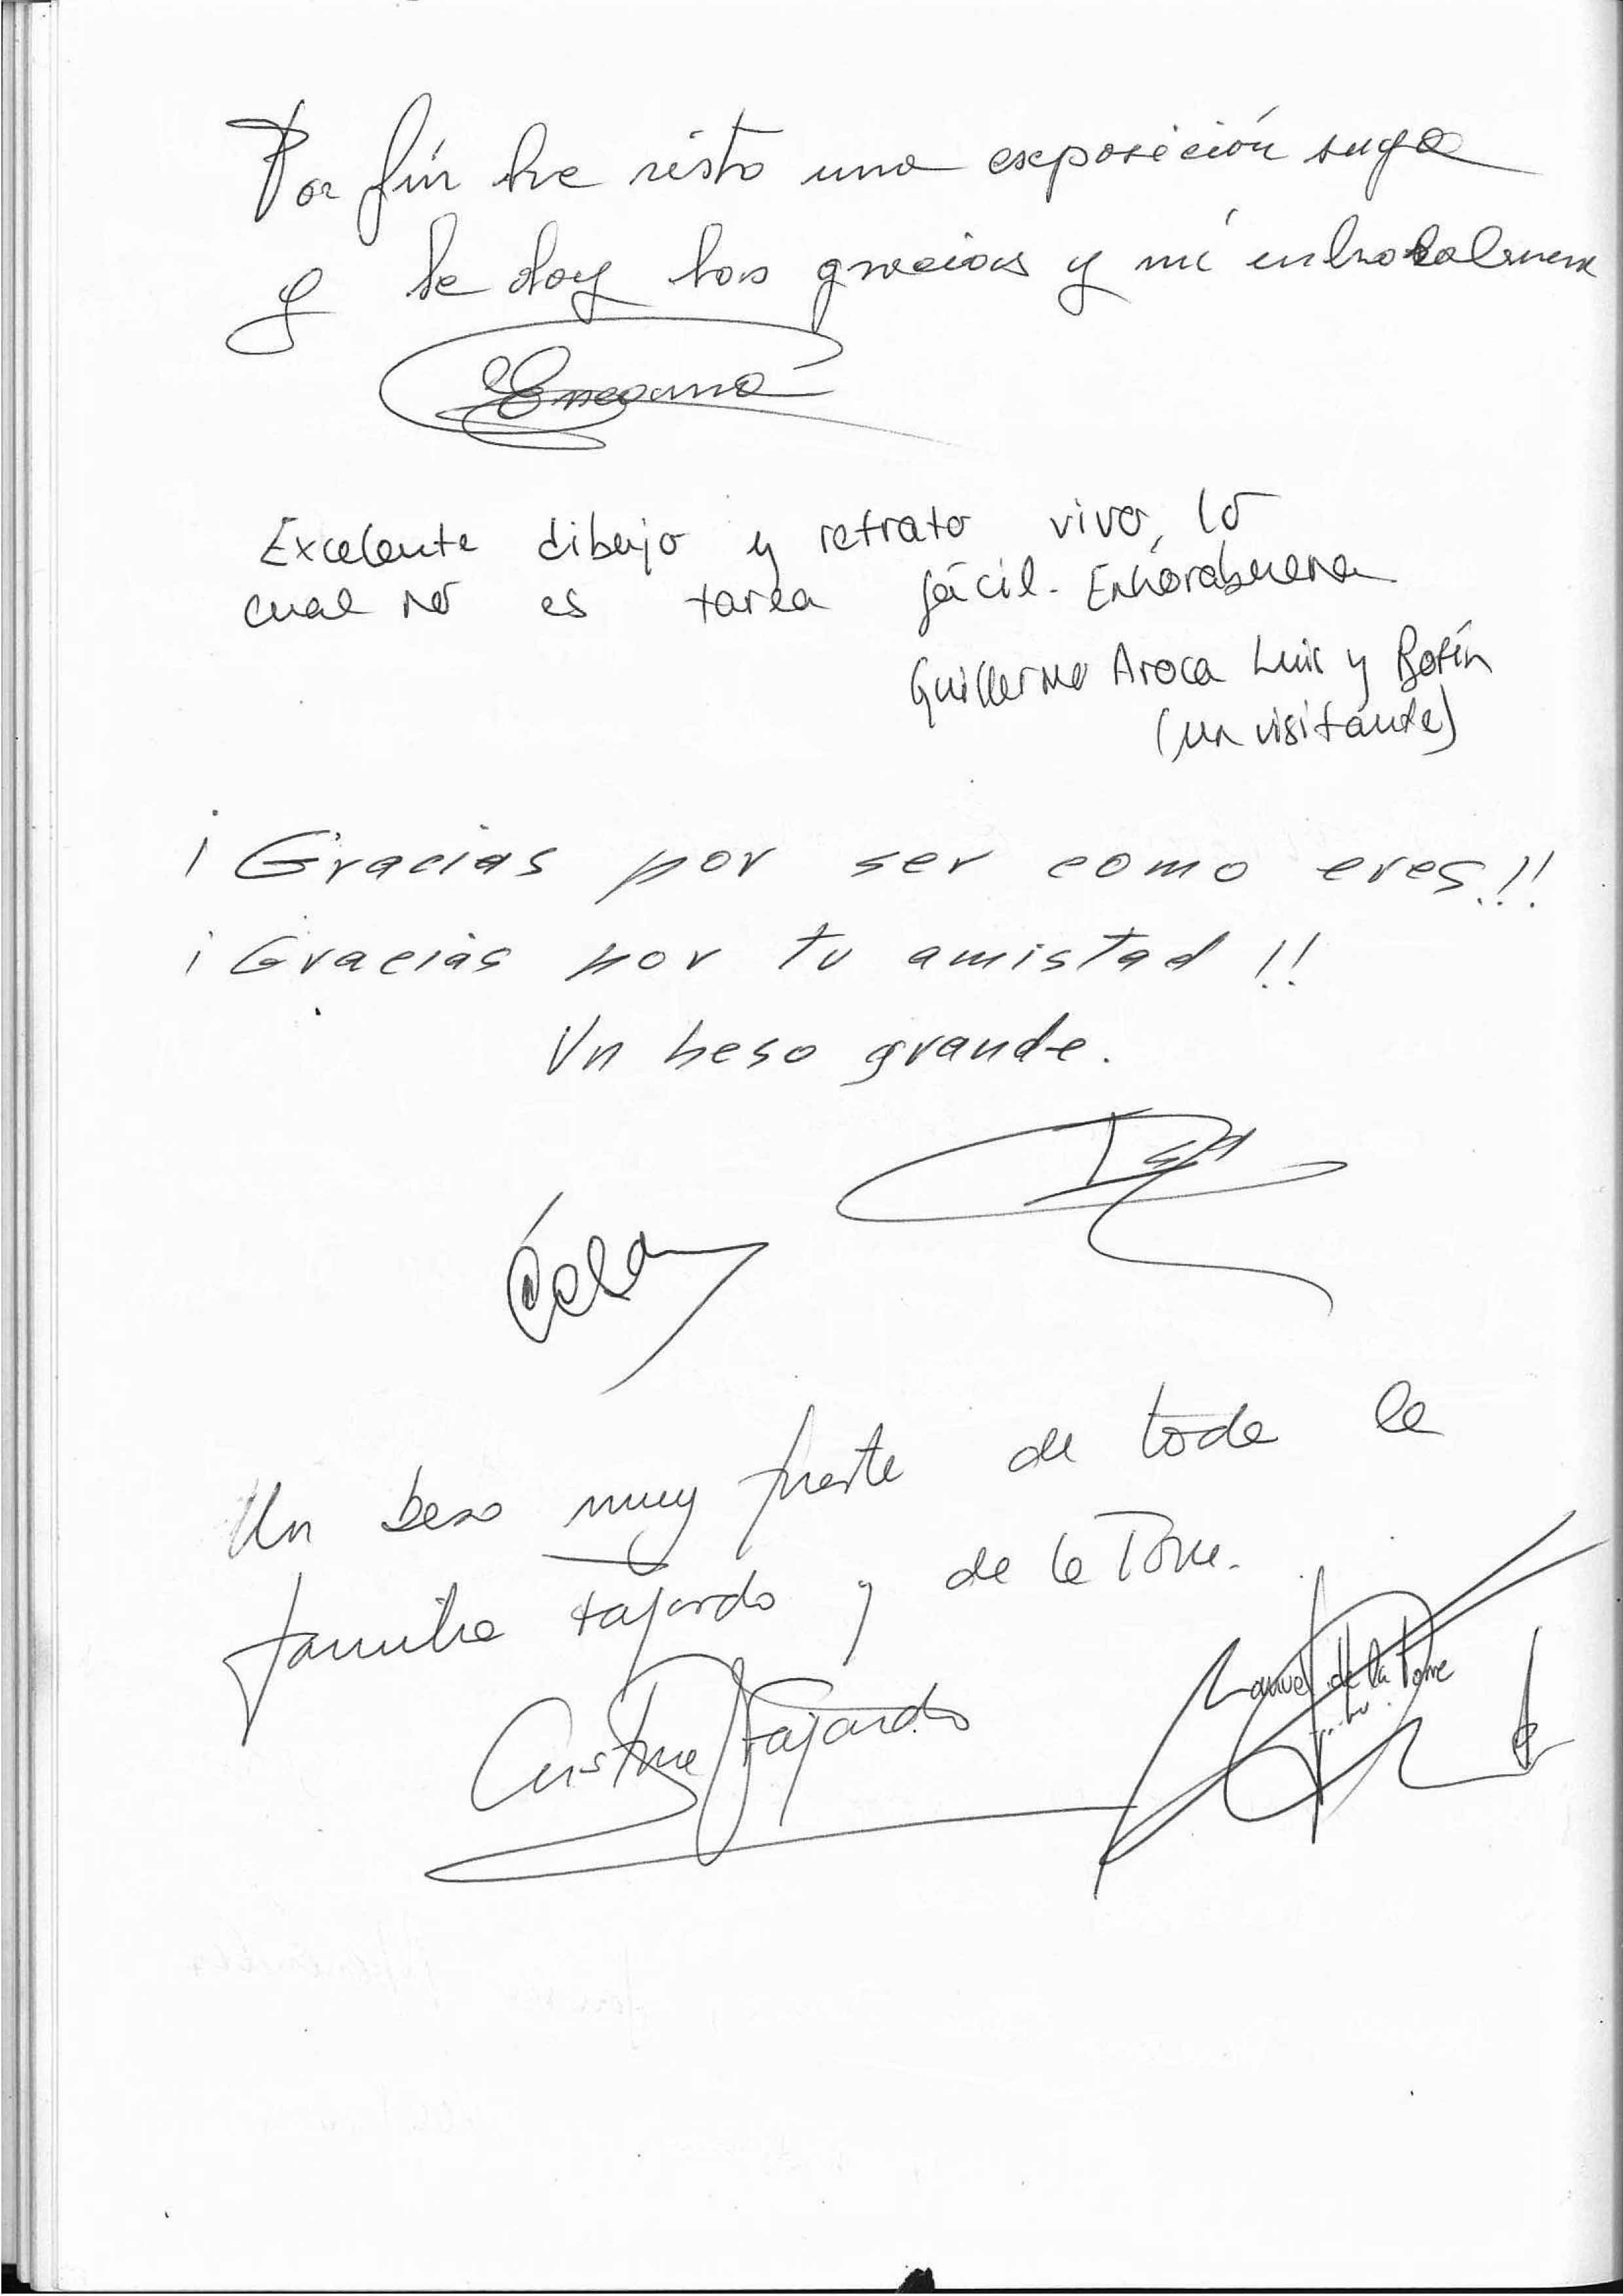 Por fín he visto una exposición suya
y le doy las gracias y mí enhorabuena
Excelente dibujo y retrato vivo, lo
cual no es tarea fácil. Enhorabuena
Guillermo Aroca Luis y Botín
(un visitante)
¡Gracias por ser como eres!!
¡Gracias por tu amistad!!
Un beso grande.
Un beso muy fuerte de toda la
familia Fajardo y de la Torre.
Cristina Fajardo
Manuel de la Torre